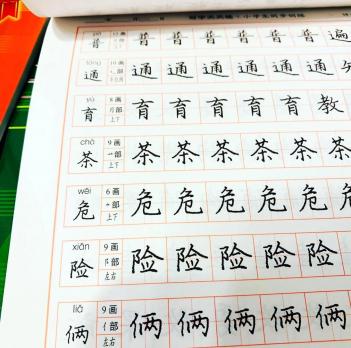 普 普 普 普 普 普 遍
tōng 10画
通 通 通 通 通 通
yù 8画
育 部 上下 育 育 育 育 育 教
chá 9画
茶 部 上下 茶 茶 茶 茶 茶 茶
wēi 6画
危 部 上下 危 危 危 危 危 危
xiǎn 9画
险 阝部 左右 险 险 险 险 险
liǎ 9画
俩 亻部 左右 俩 俩 俩 俩 俩